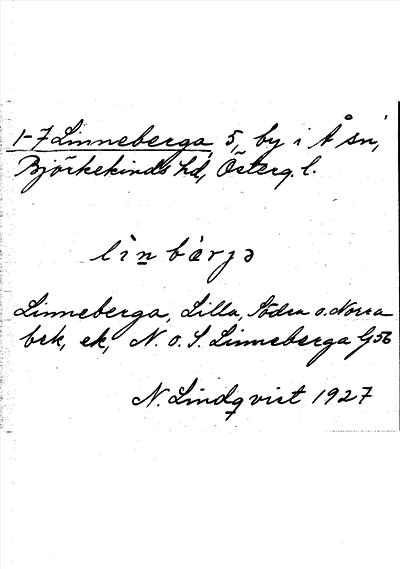 1-7 Linneberga 5, by i Å sn,
Björkekinds hd, Österg. l.
lìn bærjə
Linneberga, Lilla, Södra o. Norra
bek, ek, N. o. S. Linneberga G56
N. Lindqvist 1927